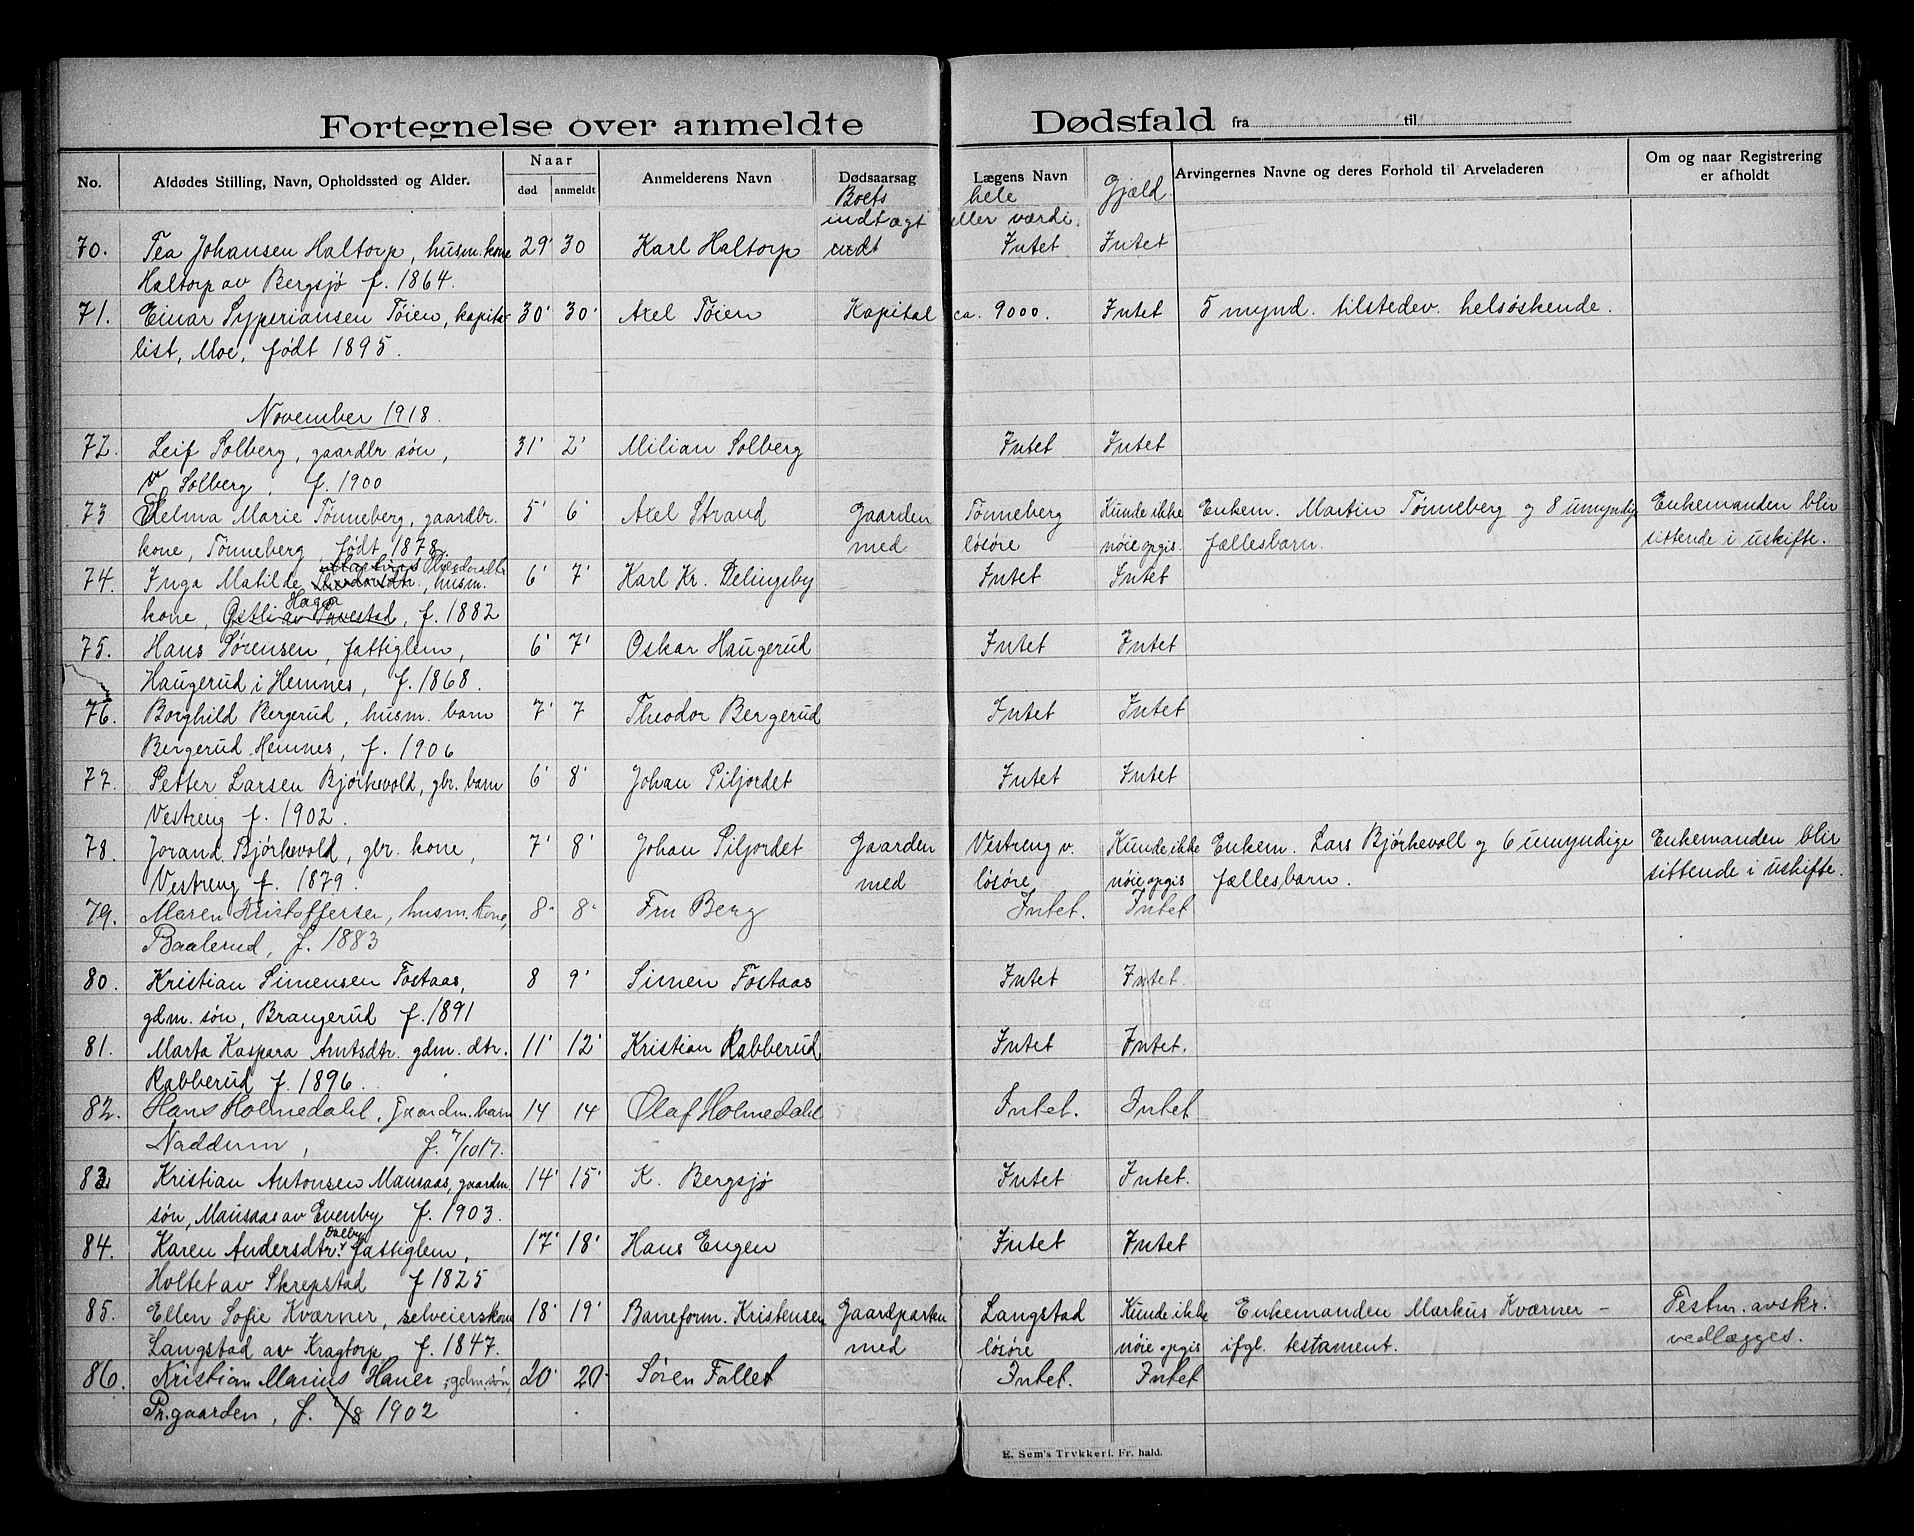 Fortegnelse over anmeldte Dødsfald fra til
No. Afdødes Stilling, Navn, Opholdssted og Alder. Naar død anmeldt Anmelderens Navn Dødsaarsag Lægens Navn Arvingernes Navne og deres Forhold til Arveladeren Om og naar Registrering er afholdt
Boets hele Gjæld
indtægt eller værdi
70. Tea Johansen Haltorp, husm. kone 29' 30 Karl Haltorp Intet Intet
Haltorp av Bergsjø f. 1864.
71. Einar Syperiansen Tøien, kapita- 30' 30' Axel Tøien Kapital ca. 9000. Intet 5 mynd. tilstedev. helsøskende.
list, Moe, født 1895.
November 1918.
72. Leif Solberg, gaardbr søn, 31' 2' Milian Solberg Intet Intet
v Solberg, f. 1900
73 Helma Marie Tønneberg, gaardbr. 5' 6' Axel Strand Gaarden Tønneberg Kunde ikke Enkem. Martin Tønneberg og 8 umyndig Enkemanden blir
kone, Tønneberg, født 1878. med løsøre nøie opgis. fællesbarn. sittende i uskifte.
74. Inga Matilde husm. 6' 7' Karl Kr. Delingsby Intet Intet
Haga
kone, Østli av Tavestad, f. 1882
75. Hans Sørensen, fattiglem, 6' 7' Oskar Haugerud Intet Intet
Haugerud i Hemnes, f. 1868.
76. Borghild Bergerud, husm. barn 7' 7 Theodor Bergerud Intet Intet
Bergerud Hemnes, f. 1906
77. Petter Larsen Bjørkevold, gbr. barn 6' 8' Johan Piljordet Intet Intet
Vestreng f. 1902.
78. Jorand Bjørkevold, gbr. kone, 7' 8' Johan Piljordet Gaarden Vestreng v. Kunde ikke Enkem. Lars Bjørkevoll og 6 umyndige Enkemanden blir
Vestreng f. 1879. med løsøre nøie opgis fællesbarn. sittende i uskifte.
79. Maren Kristoffersen, husm. kone, 8' 8' Fru Berg Intet. Intet
Baalerud, f. 1883
80. Kristian Simensen Fostaas, 8 9' Simen Fostaas Intet Intet.
gdm. søn, Brangerud f. 1891
81. Marta Kaspara Arntsdtr. gdm. dtr. 11' 12' Kristian Rabberud Intet Intet.
Rabberud f. 1896.
82. Hans Holmedahl, Gaardm. barn 14 14 Olaf Holmedahl Intet. Intet
Naddum, f. 7/10 17.
83. Kristian Antonsen Mausaas, gaardm. 14' 15' K. Bergsjø Intet Intet.
søn, Mausaas av Evenby f. 1903.
Dalby
84. Karen Andersdtr. fattiglem, 17' 18' Hans Engen Intet Intet
Holtet av Skrepstad f 1825
85. Ellen Sofie Kværner, selveierskone 18' 19' Baneform. Kristensen Gaardparten Langstad Kunde ikke Enkemanden Markus Kværner – Testm. avskr.
Langstad av Kragtorp f. 1847. med løsøre nøie opgis ifgl. testament. vedlægges.
86. Kristian Marius Haner, gdm. søn, 20' 20' Søren Fallet Intet. Intet
Pr.gaarden, f. 1902
E. Sem's Trykkeri. Fr. hald.